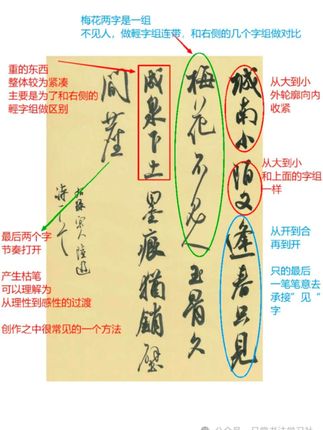 梅花两字是一组
不见人,做輕字组连带,和右侧的几个字组做对比
重的东西
整体较为紧凑
主要是为了和右侧的
輕字组做区别
从大到小
外轮廓向内
收紧
从大到小
和上面的字组
一样
从开到合
再到开
只的最后
一笔笔意去
承接"见"
字
最后两个字
节奏打开
产生枯笔
可以理解为
从理性到感性的过渡
创作之中很常见的一个方法
城南小陌又逢春只見
梅花不見人玉骨久
成泉下土墨痕猶鎖壁
間塵
宋人陸遊
公众号